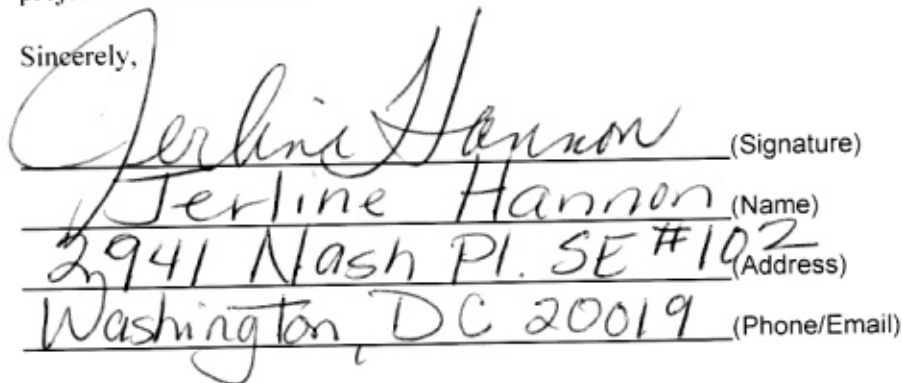 project
Sincerely,
Jerline Hannon (Signature)
Jerline Hannon (Name)
2941 Nash Pl. SE #102 (Address)
Washington, DC 20019 (Phone/Email)